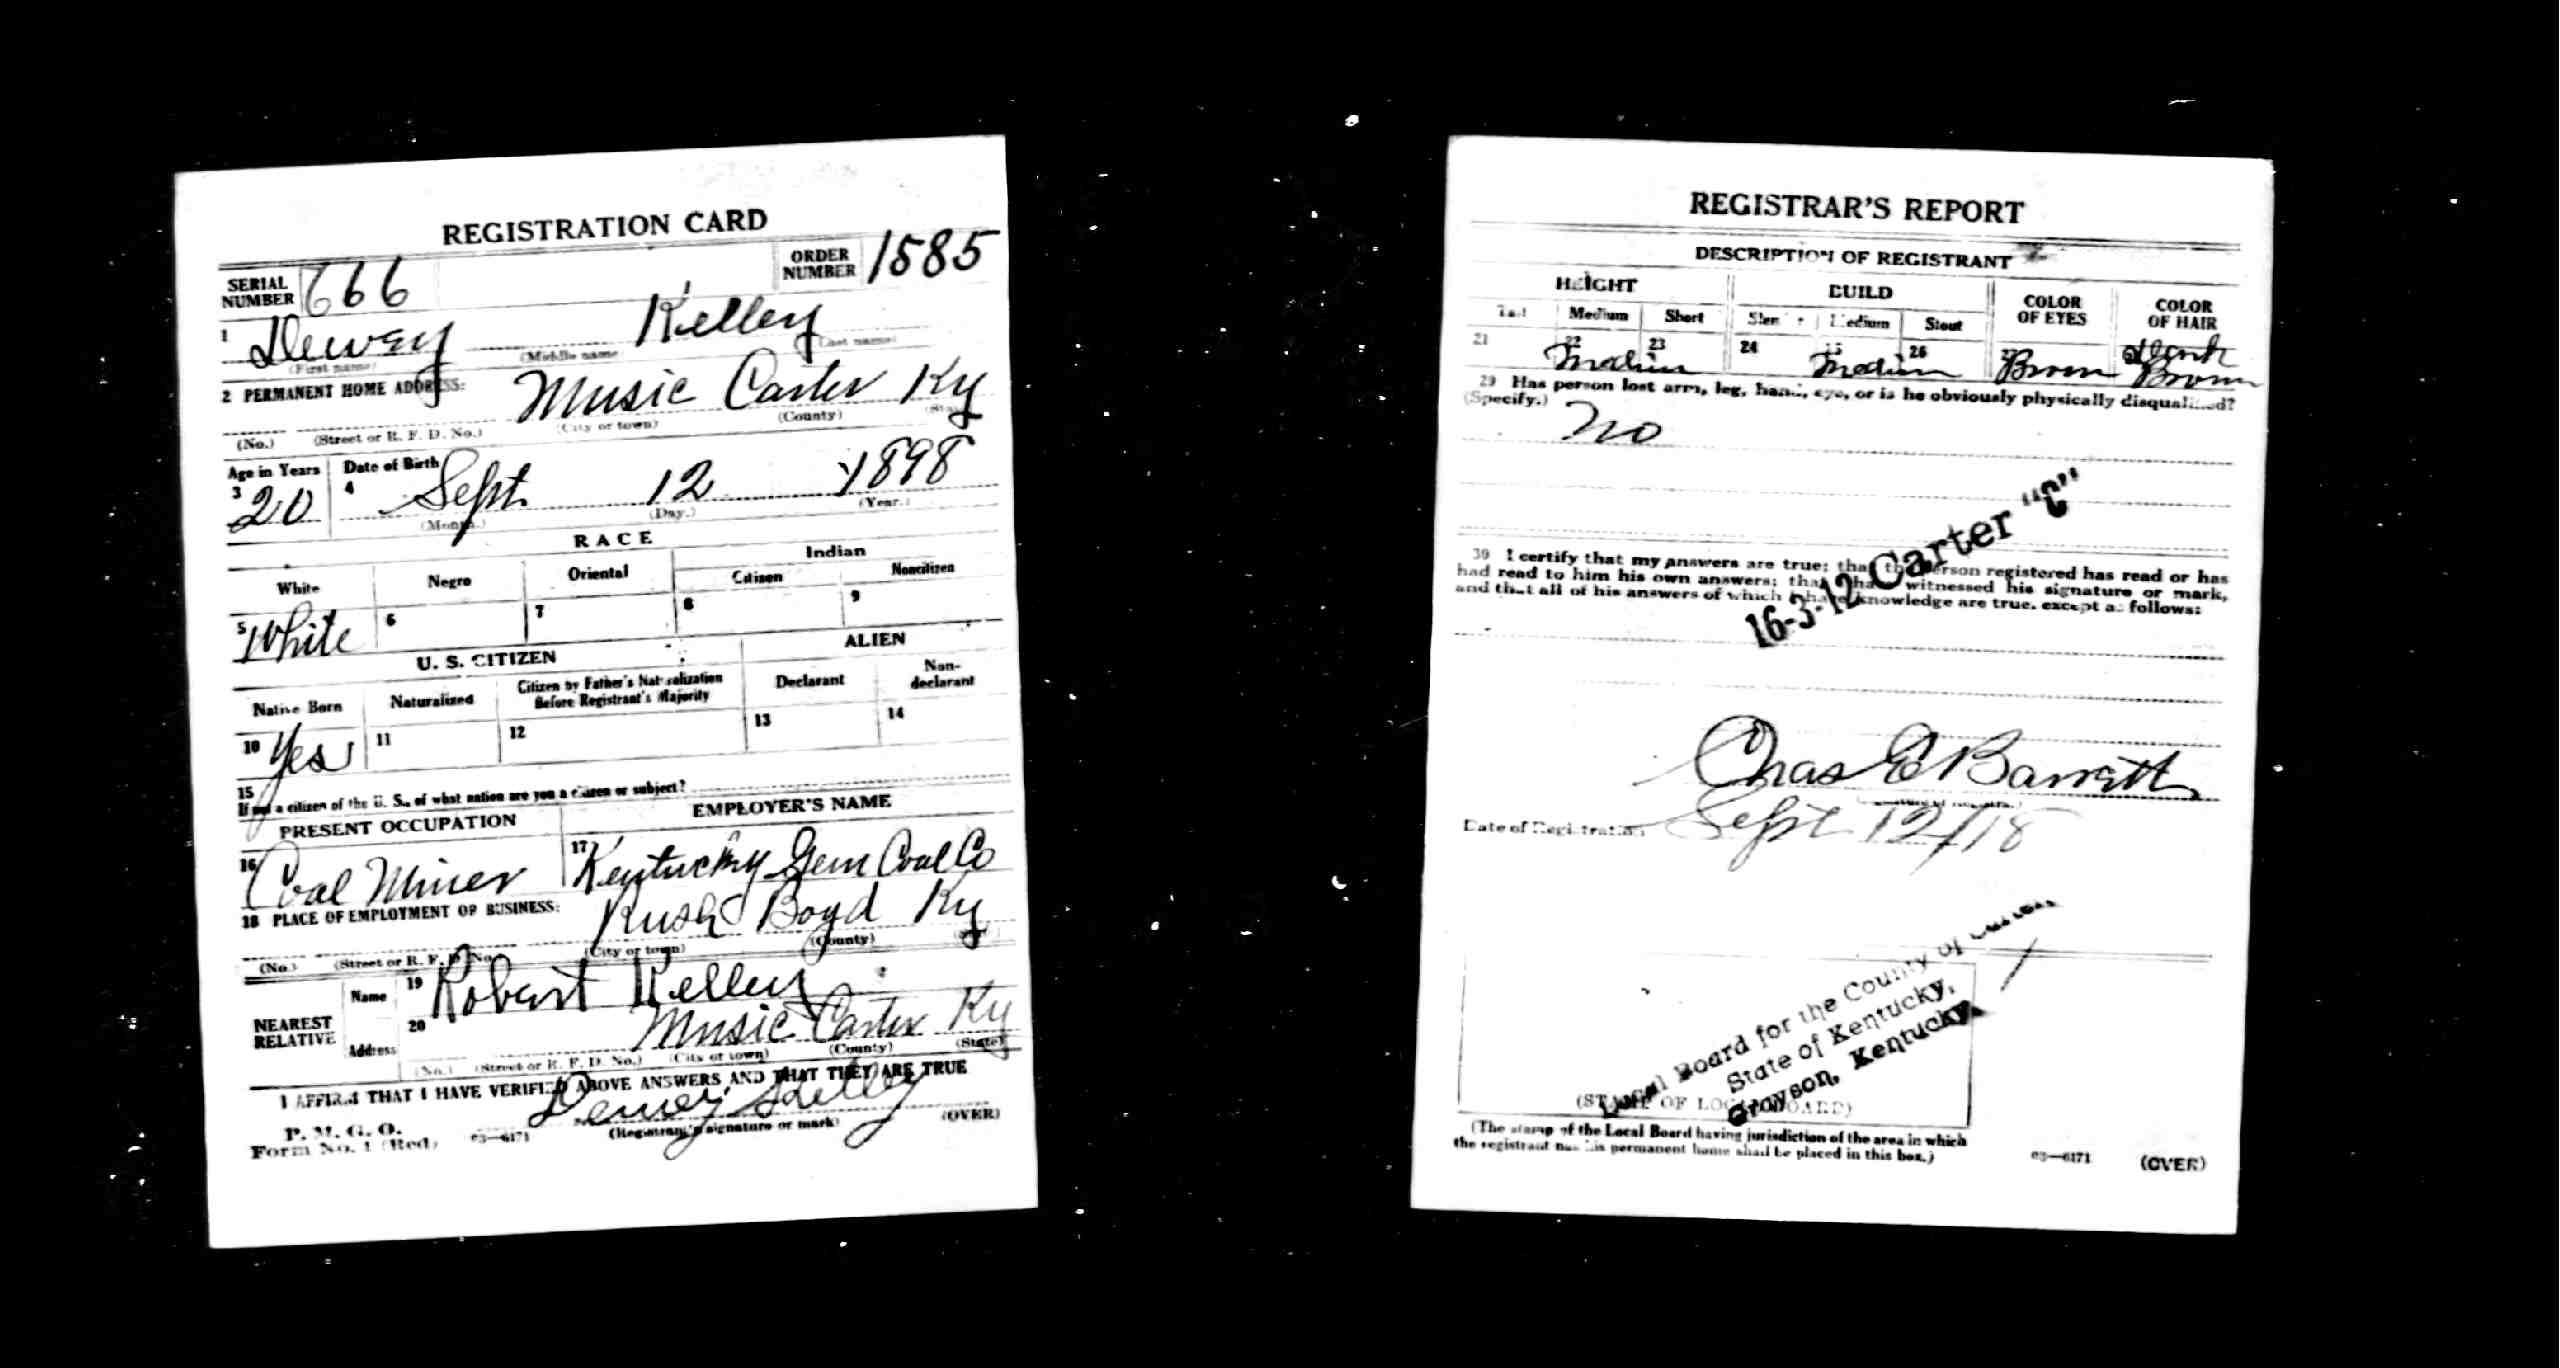 REGISTRATION CARD
SERIAL NUMBER 666 ORDER NUMBER 1585
1 Dewey Kelley
(First name) (Middle name) (Last name)
2 PERMANENT HOME ADDRESS: Music Carter Ky
(No.) (Street or R. F. D. No.) (City or town) (County) (State)
Age in Years Date of Birth
3 20 4 Sept 12 1898
(Month.) (Day.) (Year.)
RACE
White Negro Oriental Indian
Citizen Noncitizen
5 White 6 7 8 9
U. S. CITIZEN ALIEN
Native Born Naturalized Citizen by Father's Naturalization Before Registrant's Majority Declarant Non-declarant
10 Yes 11 12 13 14
15 If not a citizen of the U. S., of what nation are you a citizen or subject?
PRESENT OCCUPATION EMPLOYER'S NAME
16 Coal Miner 17 Kentucky Gem Coal Co
18 PLACE OF EMPLOYMENT OR BUSINESS: Rush Boyd Ky
(No.) (Street or R. F. D. No.) (City or town) (County) (State)
NEAREST RELATIVE Name 19 Robert Kelley
Address 20 Music Carter Ky
(No.) (Street or R. F. D. No.) (City or town) (County) (State)
I AFFIRM THAT I HAVE VERIFIED ABOVE ANSWERS AND THAT THEY ARE TRUE
Dewey Kelley
P. M. G. O.
Form No. 1 (Red) 03—6171 (Registrant's signature or mark) (OVER)
REGISTRAR'S REPORT
DESCRIPTION OF REGISTRANT
HEIGHT BUILD COLOR OF EYES COLOR OF HAIR
Tall Medium Short Slender Medium Stout
21 22 Medium 23 24 25 Medium 26 27 Brown Dark Brown
29 Has person lost arm, leg, hand, eye, or is he obviously physically disqualified?
(Specify.) No
16-3-12 Carter "C"
30 I certify that my answers are true; that the person registered has read or has
had read to him his own answers; that I have witnessed his signature or mark,
and that all of his answers of which I have knowledge are true, except as follows:
Chas E Barrett
Date of Registration Sept 12/18
Local Board for the County of Carter
State of Kentucky,
Grayson, Kentucky
(STAMP OF LOCAL BOARD)
(The stamp of the Local Board having jurisdiction of the area in which
the registrant has his permanent home shall be placed in this box.)
03—6171 (OVER)